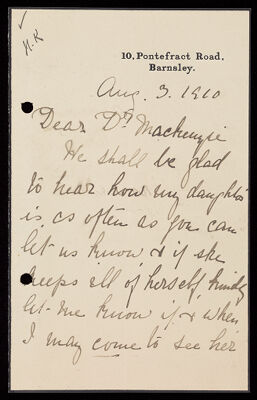 N.R
10, Pontefract Road,
Barnsley.
Aug. 3. 1910
Dear Dr Mackenzie
We shall be glad
to hear how my daughter
is, as often as you can
let us know & if she
keeps ill of herself, kindly
let me know if & when
I may come to see her